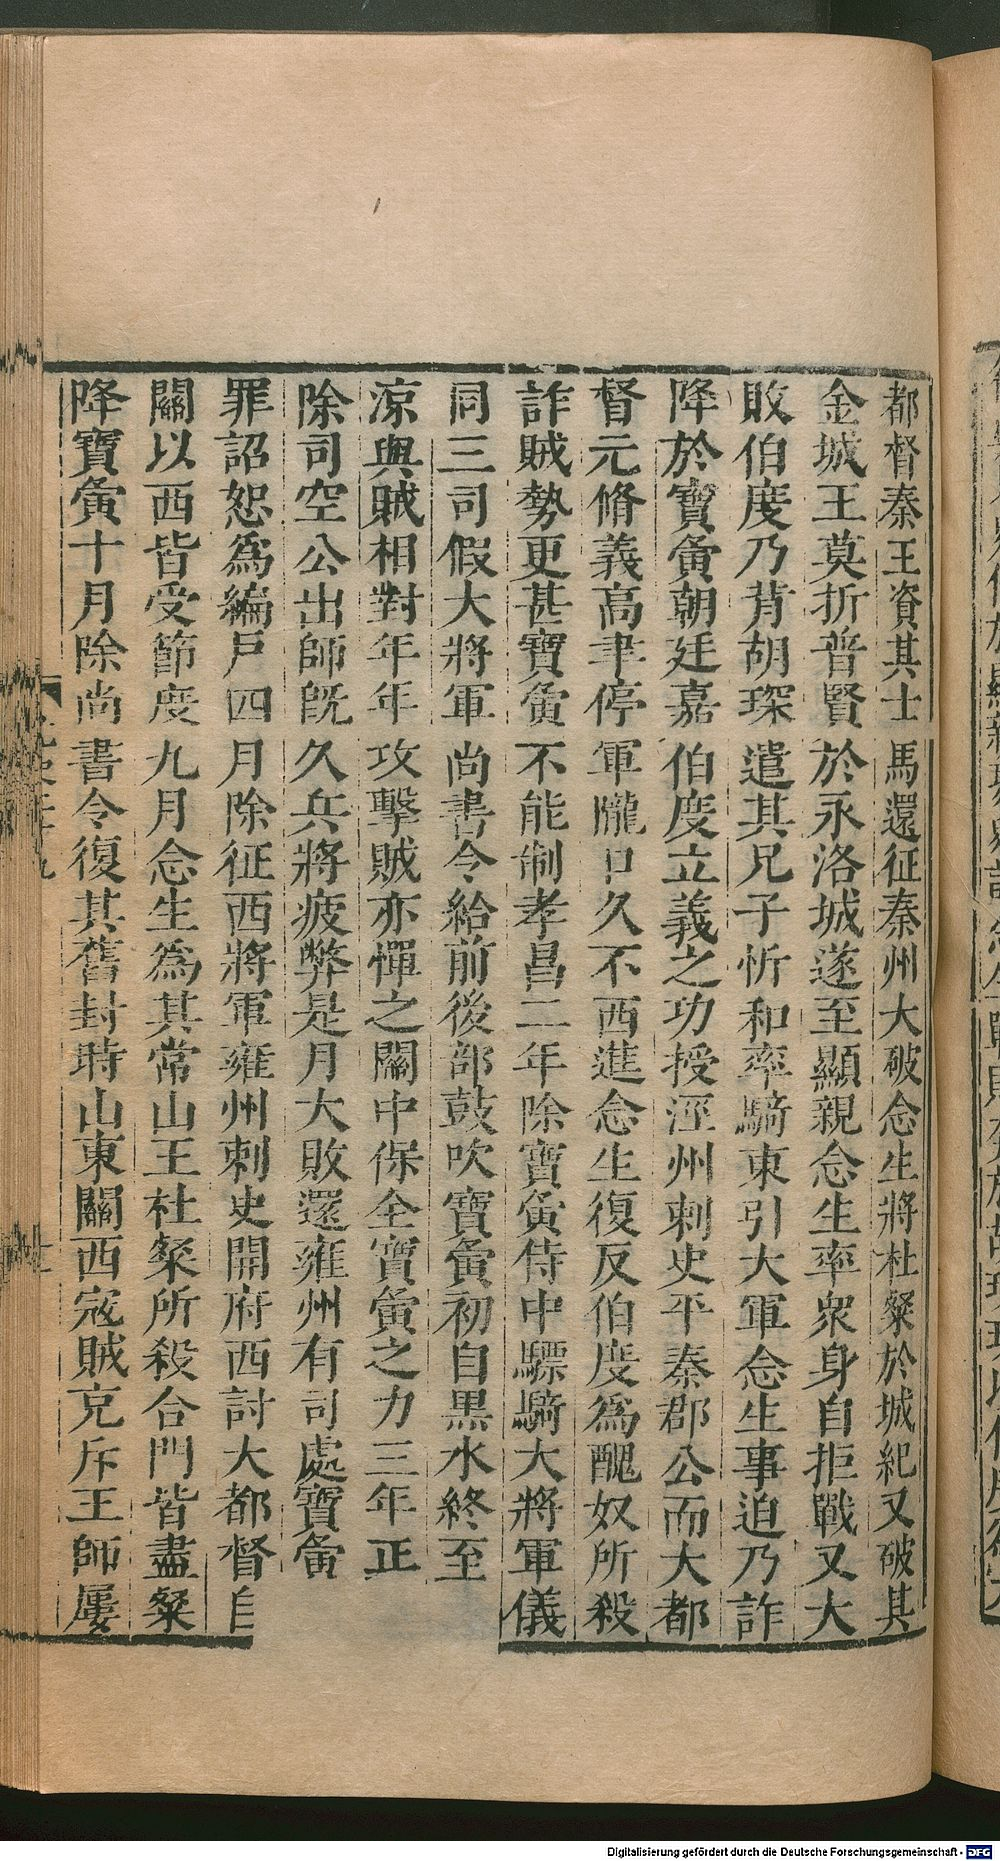 都督秦王資其士馬還征秦州大破念生將杜粲於城紀又破其
金城王莫折普賢於永洛城遂至顯親念生率衆身自拒戰又大
敗伯度乃背胡琛遣其兄子忻和率騎東引大軍念生事迫乃詐
降於寶夤朝廷嘉伯度立義之功授涇州刺史平秦郡公而大都
督元脩義高聿停軍隴口久不西進念生復反伯度爲醜奴所殺
詐賊勢更甚寶夤不能制孝昌二年除寶夤侍中驃騎大將軍儀
同三司假大將軍尚書令給前後部鼓吹寶夤初自黒水終至
涼與賊相對年年攻擊賊亦憚之關中保全寶夤之力三年正
除司空公出師旣久兵將疲弊是月大敗還雍州有司處寶夤
罪詔恕爲編戶四月除征西將軍雍州刺史開府西討大都督自
關以西皆受節度九月念生爲其常山王杜粲所殺合門皆盡粲
降寶夤十月除尚書令復其舊封時山東關西寇賊克斥王師屢
Digitalisierung gefördert durch die Deutsche Forschungsgemeinschaft - DFG